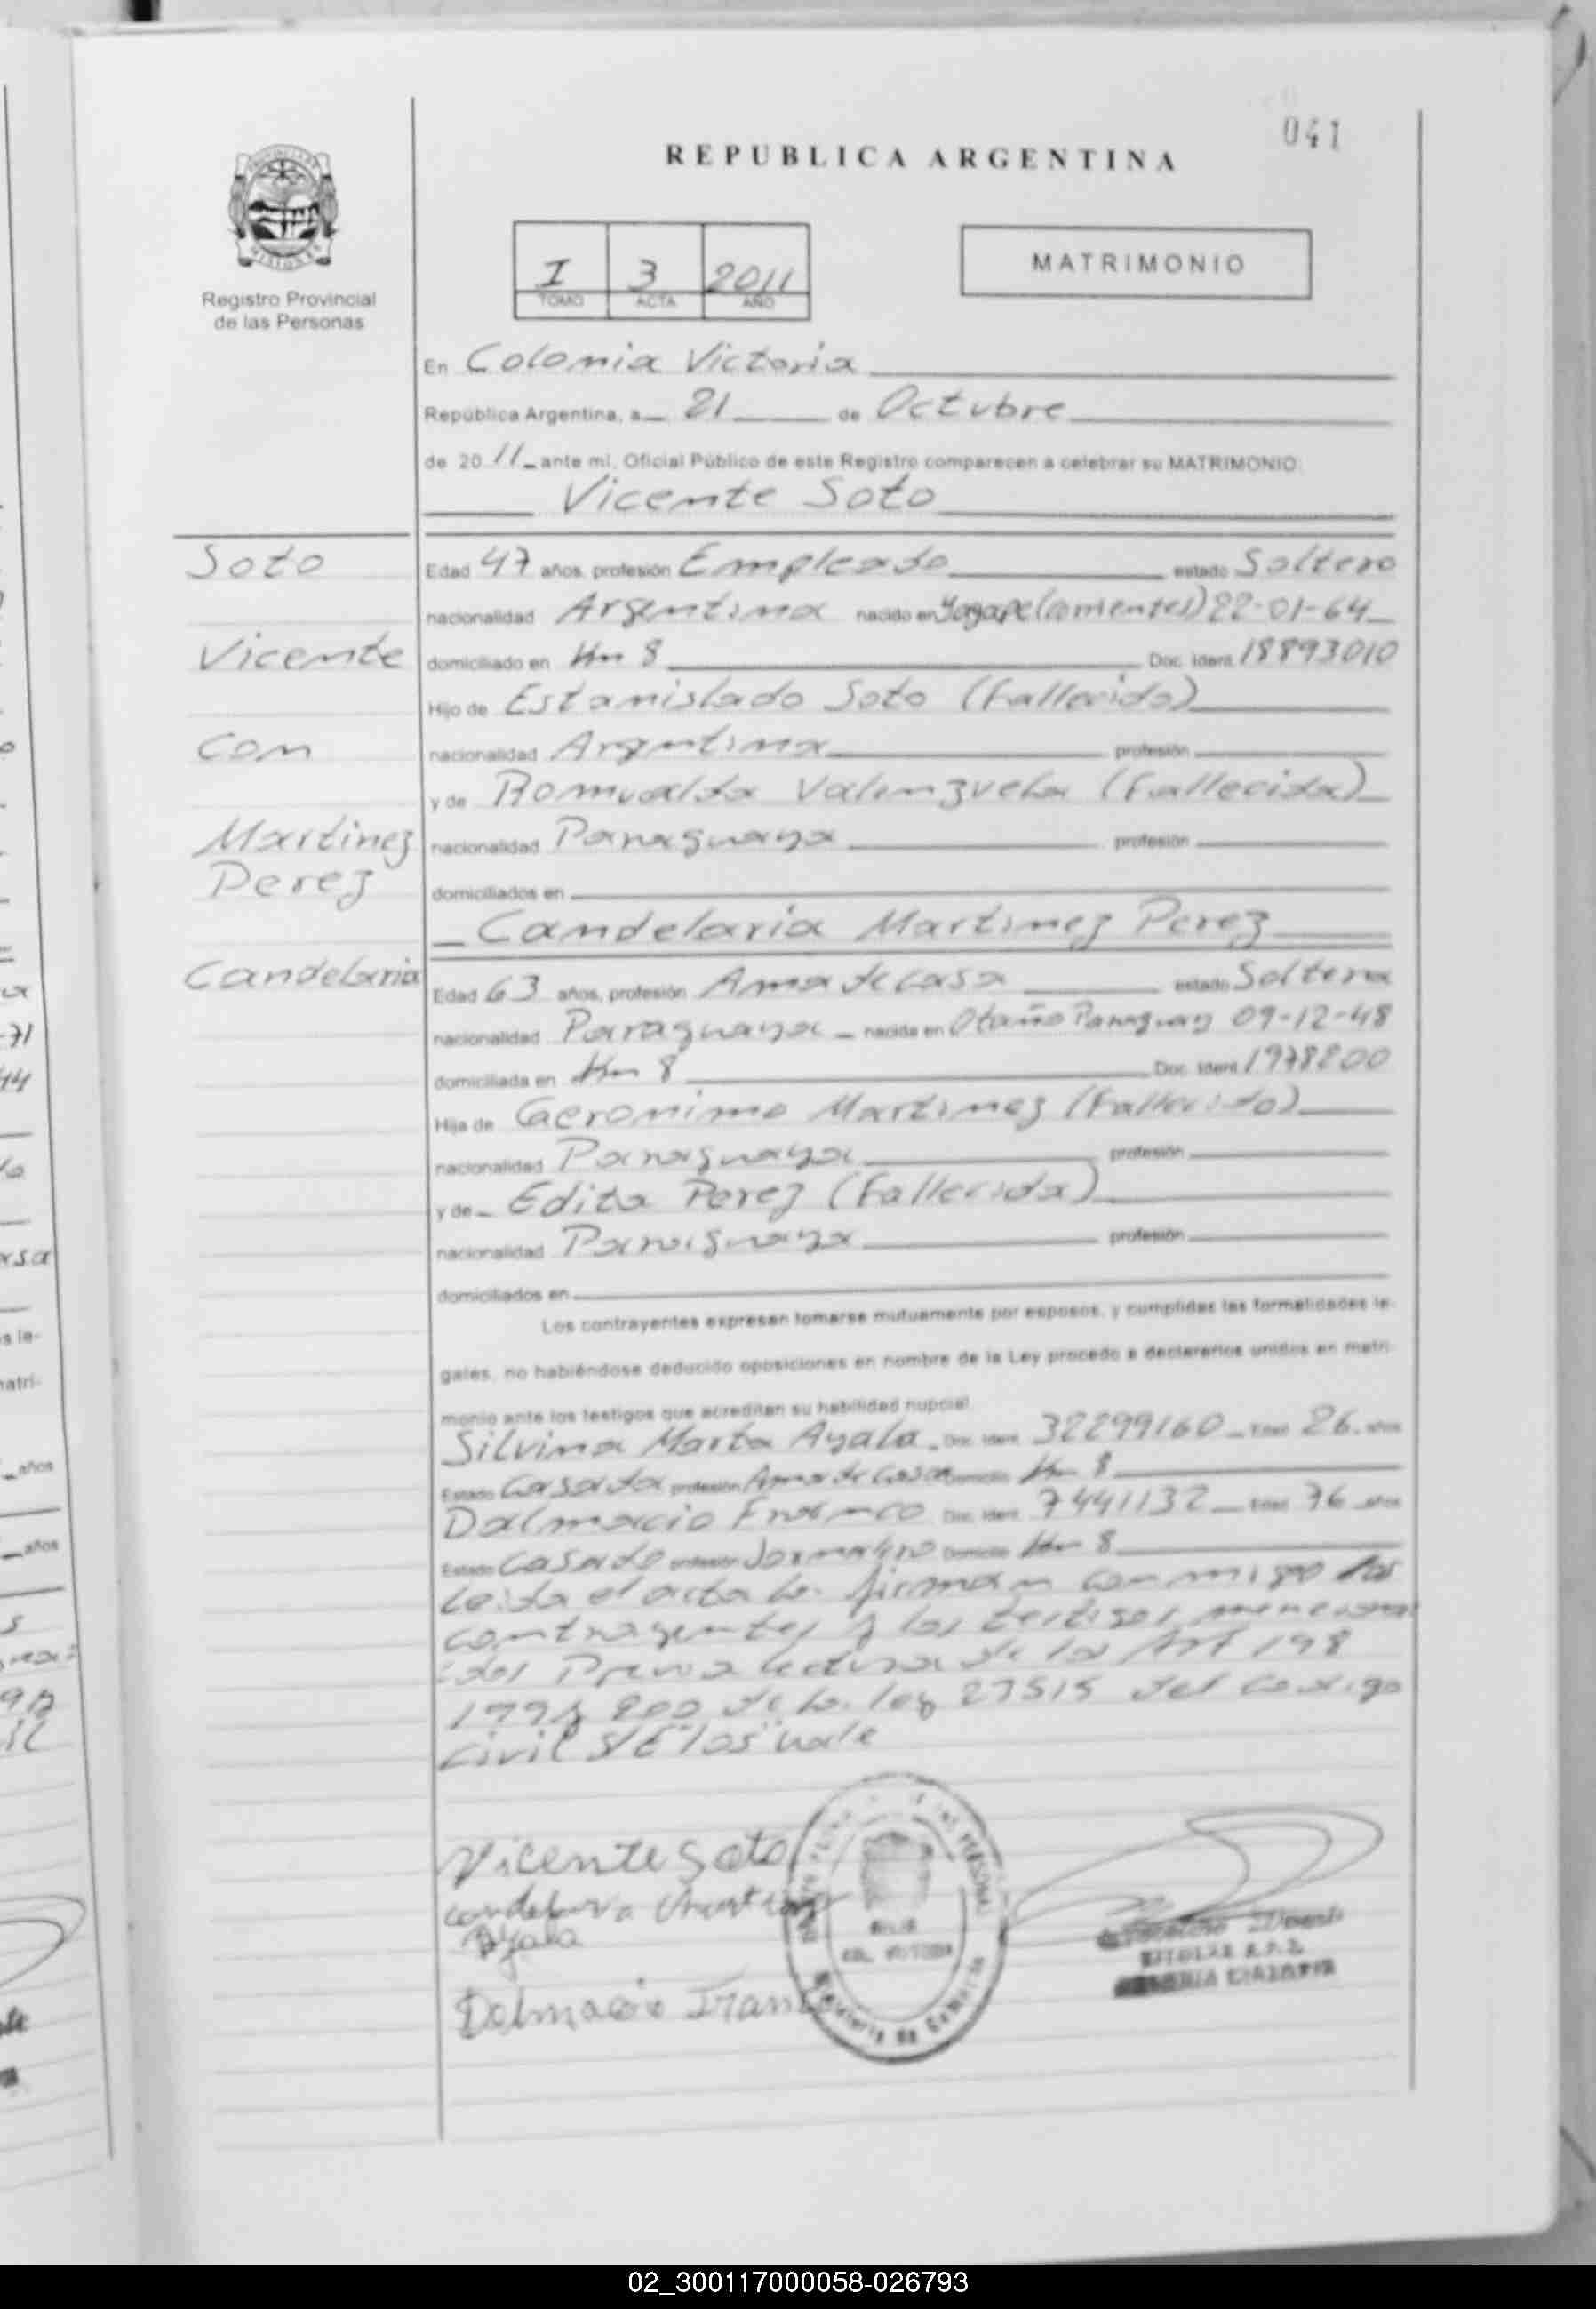 041
REPUBLICA ARGENTINA
I 3 2011
TOMO ACTA AÑO
MATRIMONIO
Registro Provincial
de las Personas
En Colonia Victoria
República Argentina, a 21 de Octubre
de 2011 ante mi, Oficial Público de este Registro comparecen a celebrar su MATRIMONIO
Vicente Soto
Soto
Vicente
con
Martinez
Perez
Candelaria
Edad 47 años, profesión Empleado estado Soltero
nacionalidad Argentina nacido en (Corrientes) 22-01-64
domiciliado en Km 8 Doc. Ident. 18893010
Hijo de Estanislado Soto (Fallecido)
nacionalidad Argentina profesión
y de Romualda Valenzuela (Fallecida)
nacionalidad Paraguaya profesión
domiciliados en
Candelaria Martinez Perez
Edad 63 años, profesión Ama de casa estado Soltera
nacionalidad Paraguaya nacida en Otaño Paraguay 09-12-48
domiciliada en Km 8 Doc. Ident. 1978200
Hija de Geronimo Martinez (Fallecido)
nacionalidad Paraguaya profesión
y de Edita Perez (Fallecida)
nacionalidad Paraguaya profesión
domiciliados en
Los contrayentes expresan tomarse mutuamente por esposos, y cumplidas las formalidades le-
gales, no habiéndose deducido oposiciones en nombre de la Ley procedo a declararlos unidos en matri-
monio ante los testigos que acreditan su habilidad nupcial
Silvina Marta Ayala Doc. Ident. 32299160 Edad 26 años
Estado Casada profesión Ama de Casa Domicilio Km 8
Dalmacio Franco Doc. Ident. 7441132 Edad 76 años
Estado Casado profesión Jornalero Domicilio Km 8
Leida el acta la firman conmigo los
contrayentes y los testigos menciona
dos Previa lectura de los Art 198
199 y 200 de la ley 23515 del Codigo
Civil S/E "los" vale
Vicente Soto
Candelaria
Ayala
Dalmacio Franco
02_300117000058-026793